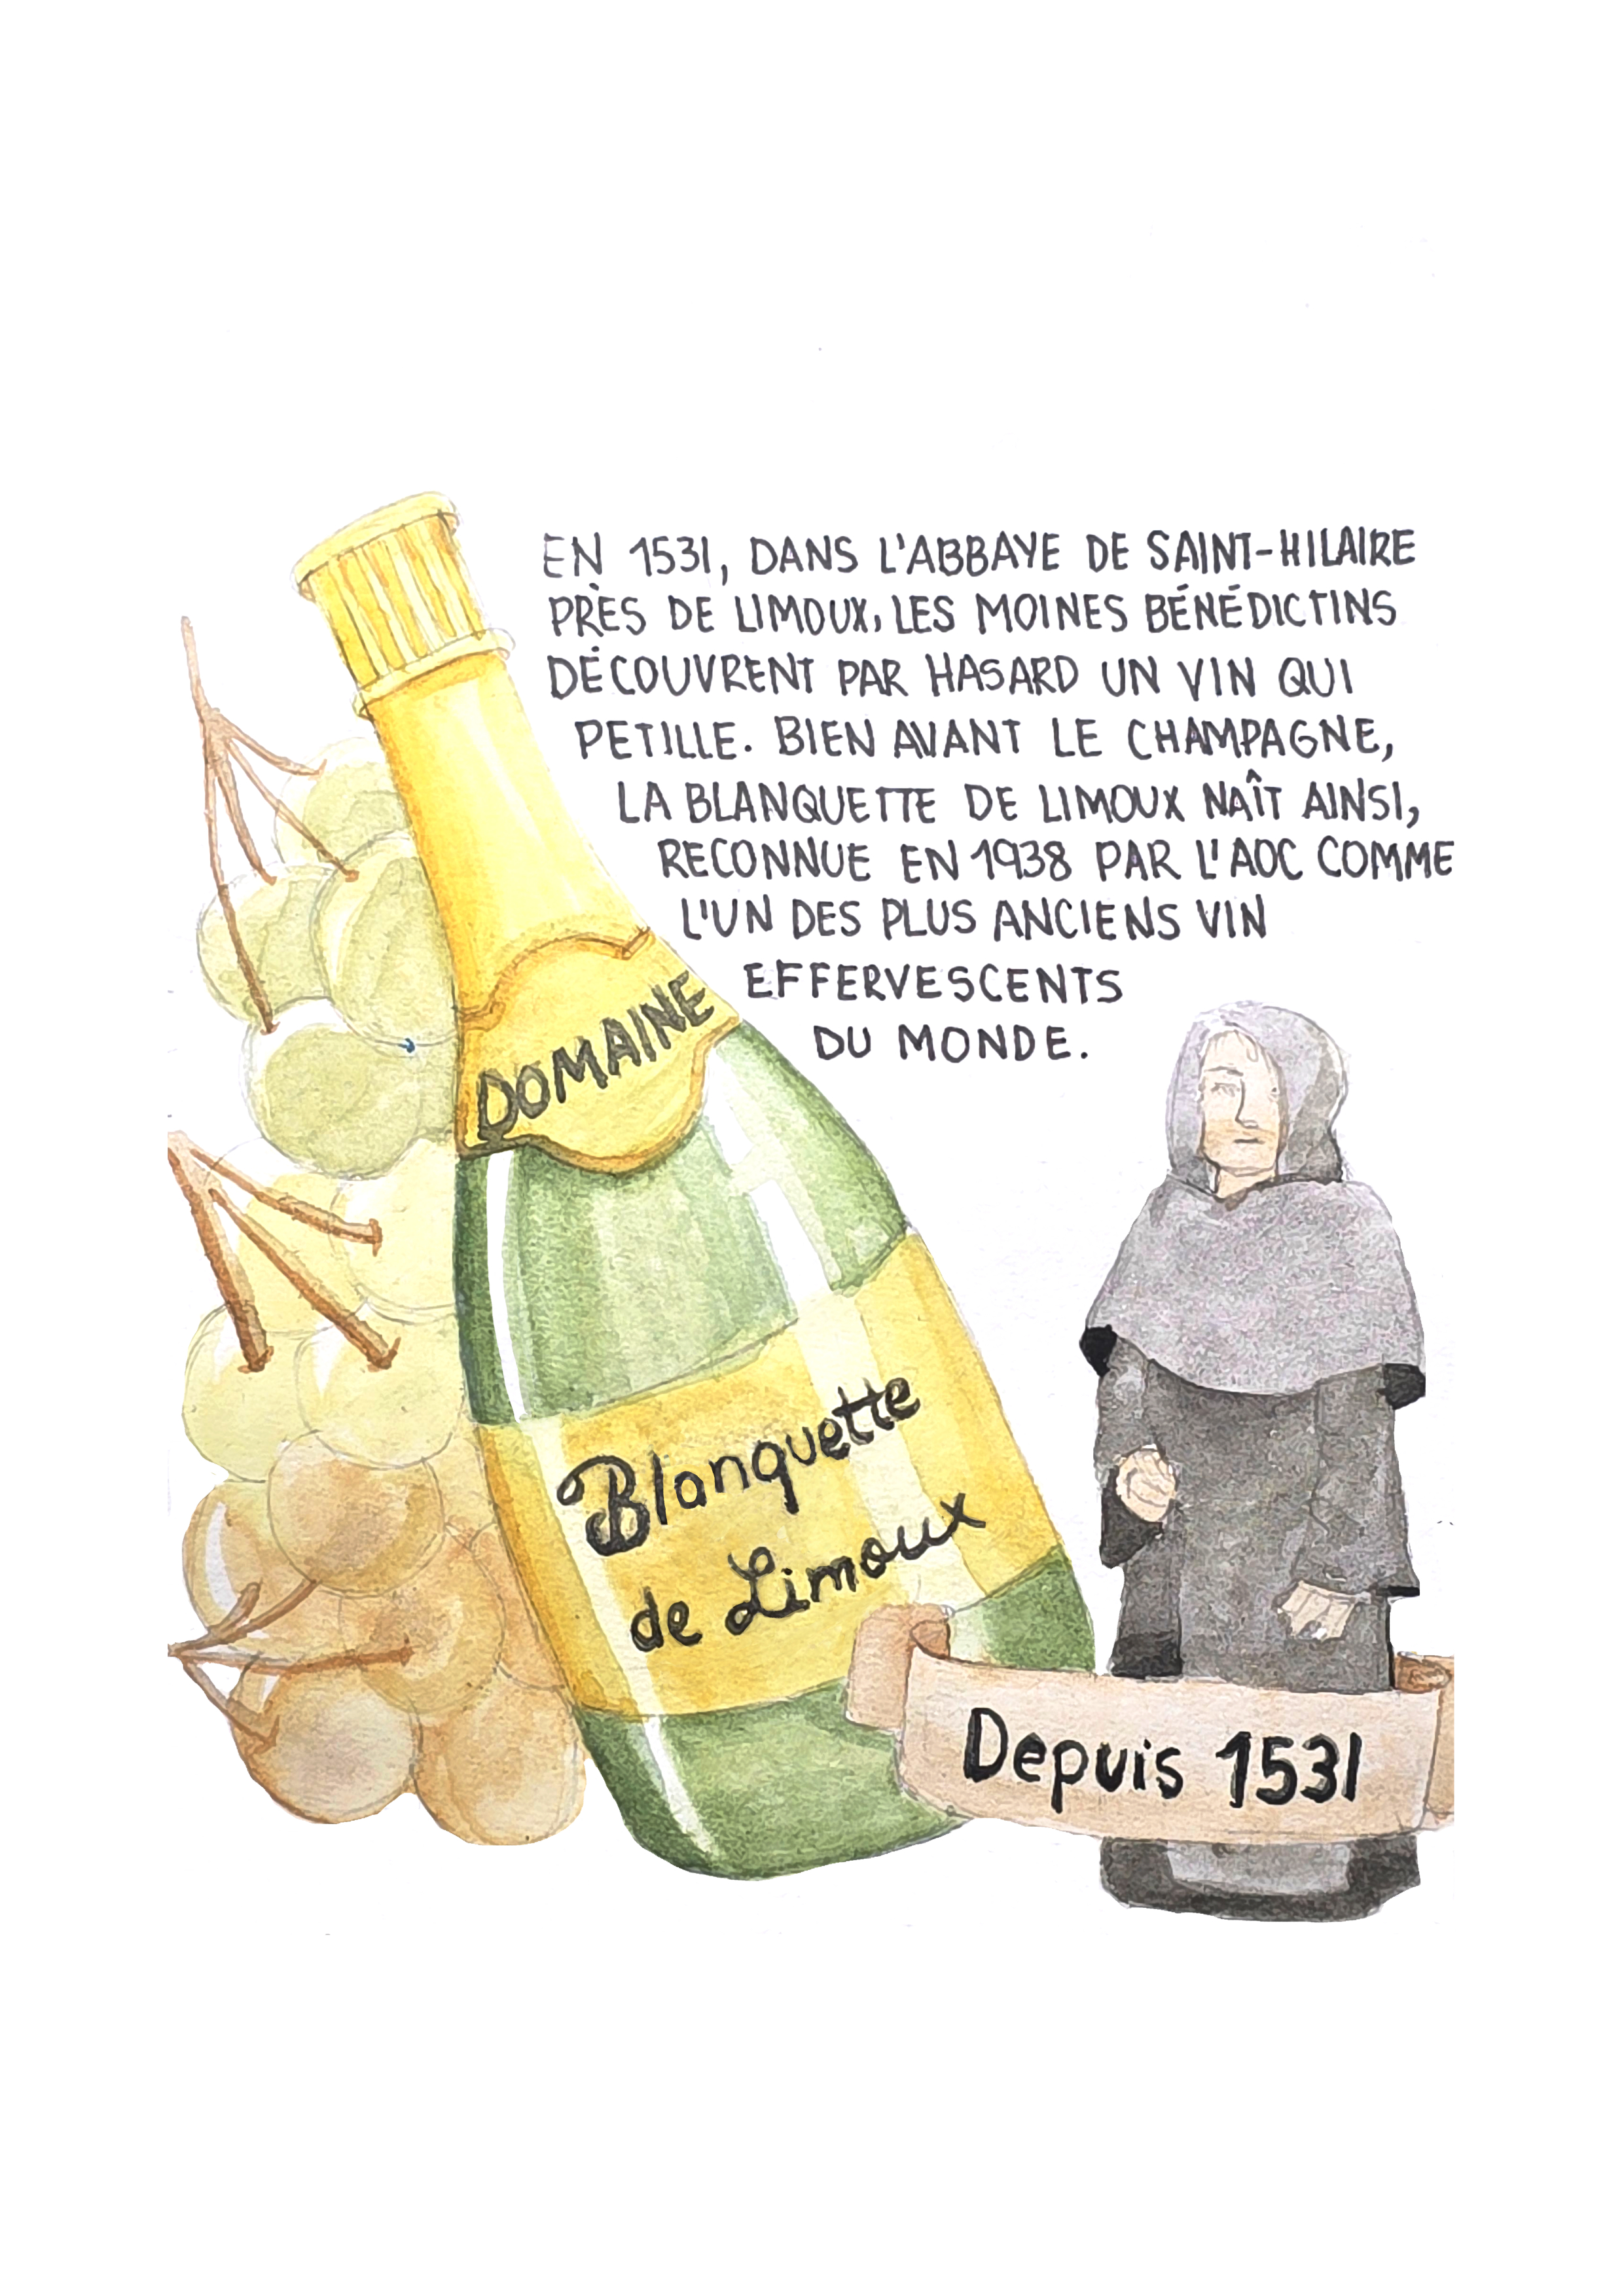 EN 1531, DANS L'ABBAYE DE SAINT-HILAIRE
PRÈS DE LIMOUX, LES MOINES BÉNÉDICTINS
DÉCOUVRENT PAR HASARD UN VIN QUI
PETILLE. BIEN AVANT LE CHAMPAGNE,
LA BLANQUETTE DE LIMOUX NAÎT AINSI,
RECONNUE EN 1938 PAR L'AOC COMME
L'UN DES PLUS ANCIENS VIN
EFFERVESCENTS
DU MONDE.
DOMAINE
Blanquette
de Limoux
Depuis 1531